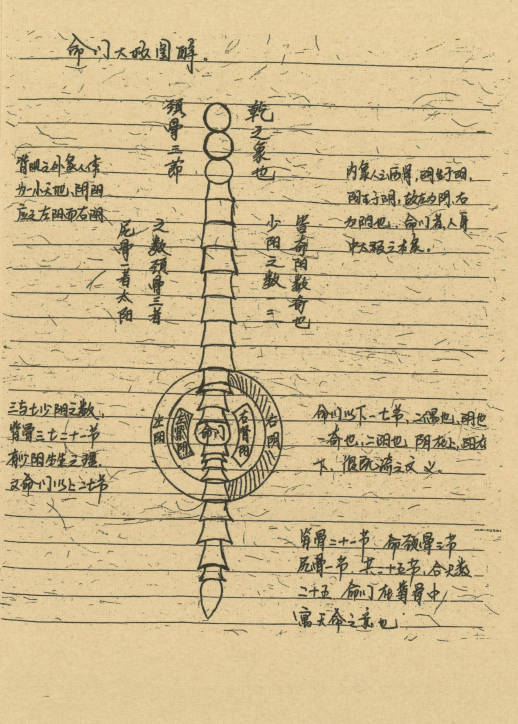 命门大极图解。
乾之象也
颈骨三节
人体
为一小天地、阴阳
应之左阳而右阴
内象人之两肾,阴生于阳,
阳生于阴,故左为阳、右
为阴也,命门者人身
中太极之本象。
皆奇阳数奇也
少阳之数一二
之数颈骨三者
尾骨一者太阳
三与七少阴之数,
脊骨三七二十一节
有少阳生生之理,
又命门以上二七节
左阳
命门
右肾阴
右阴
命门以下一七节,二偶也,阴也
一奇也,二阴也,阴在上,阳在
下,之文义。
脊骨二十一节 颈骨三节
尾骨一节 共二十五节,合天数
二十五 命门在脊骨中
寓天命之意也